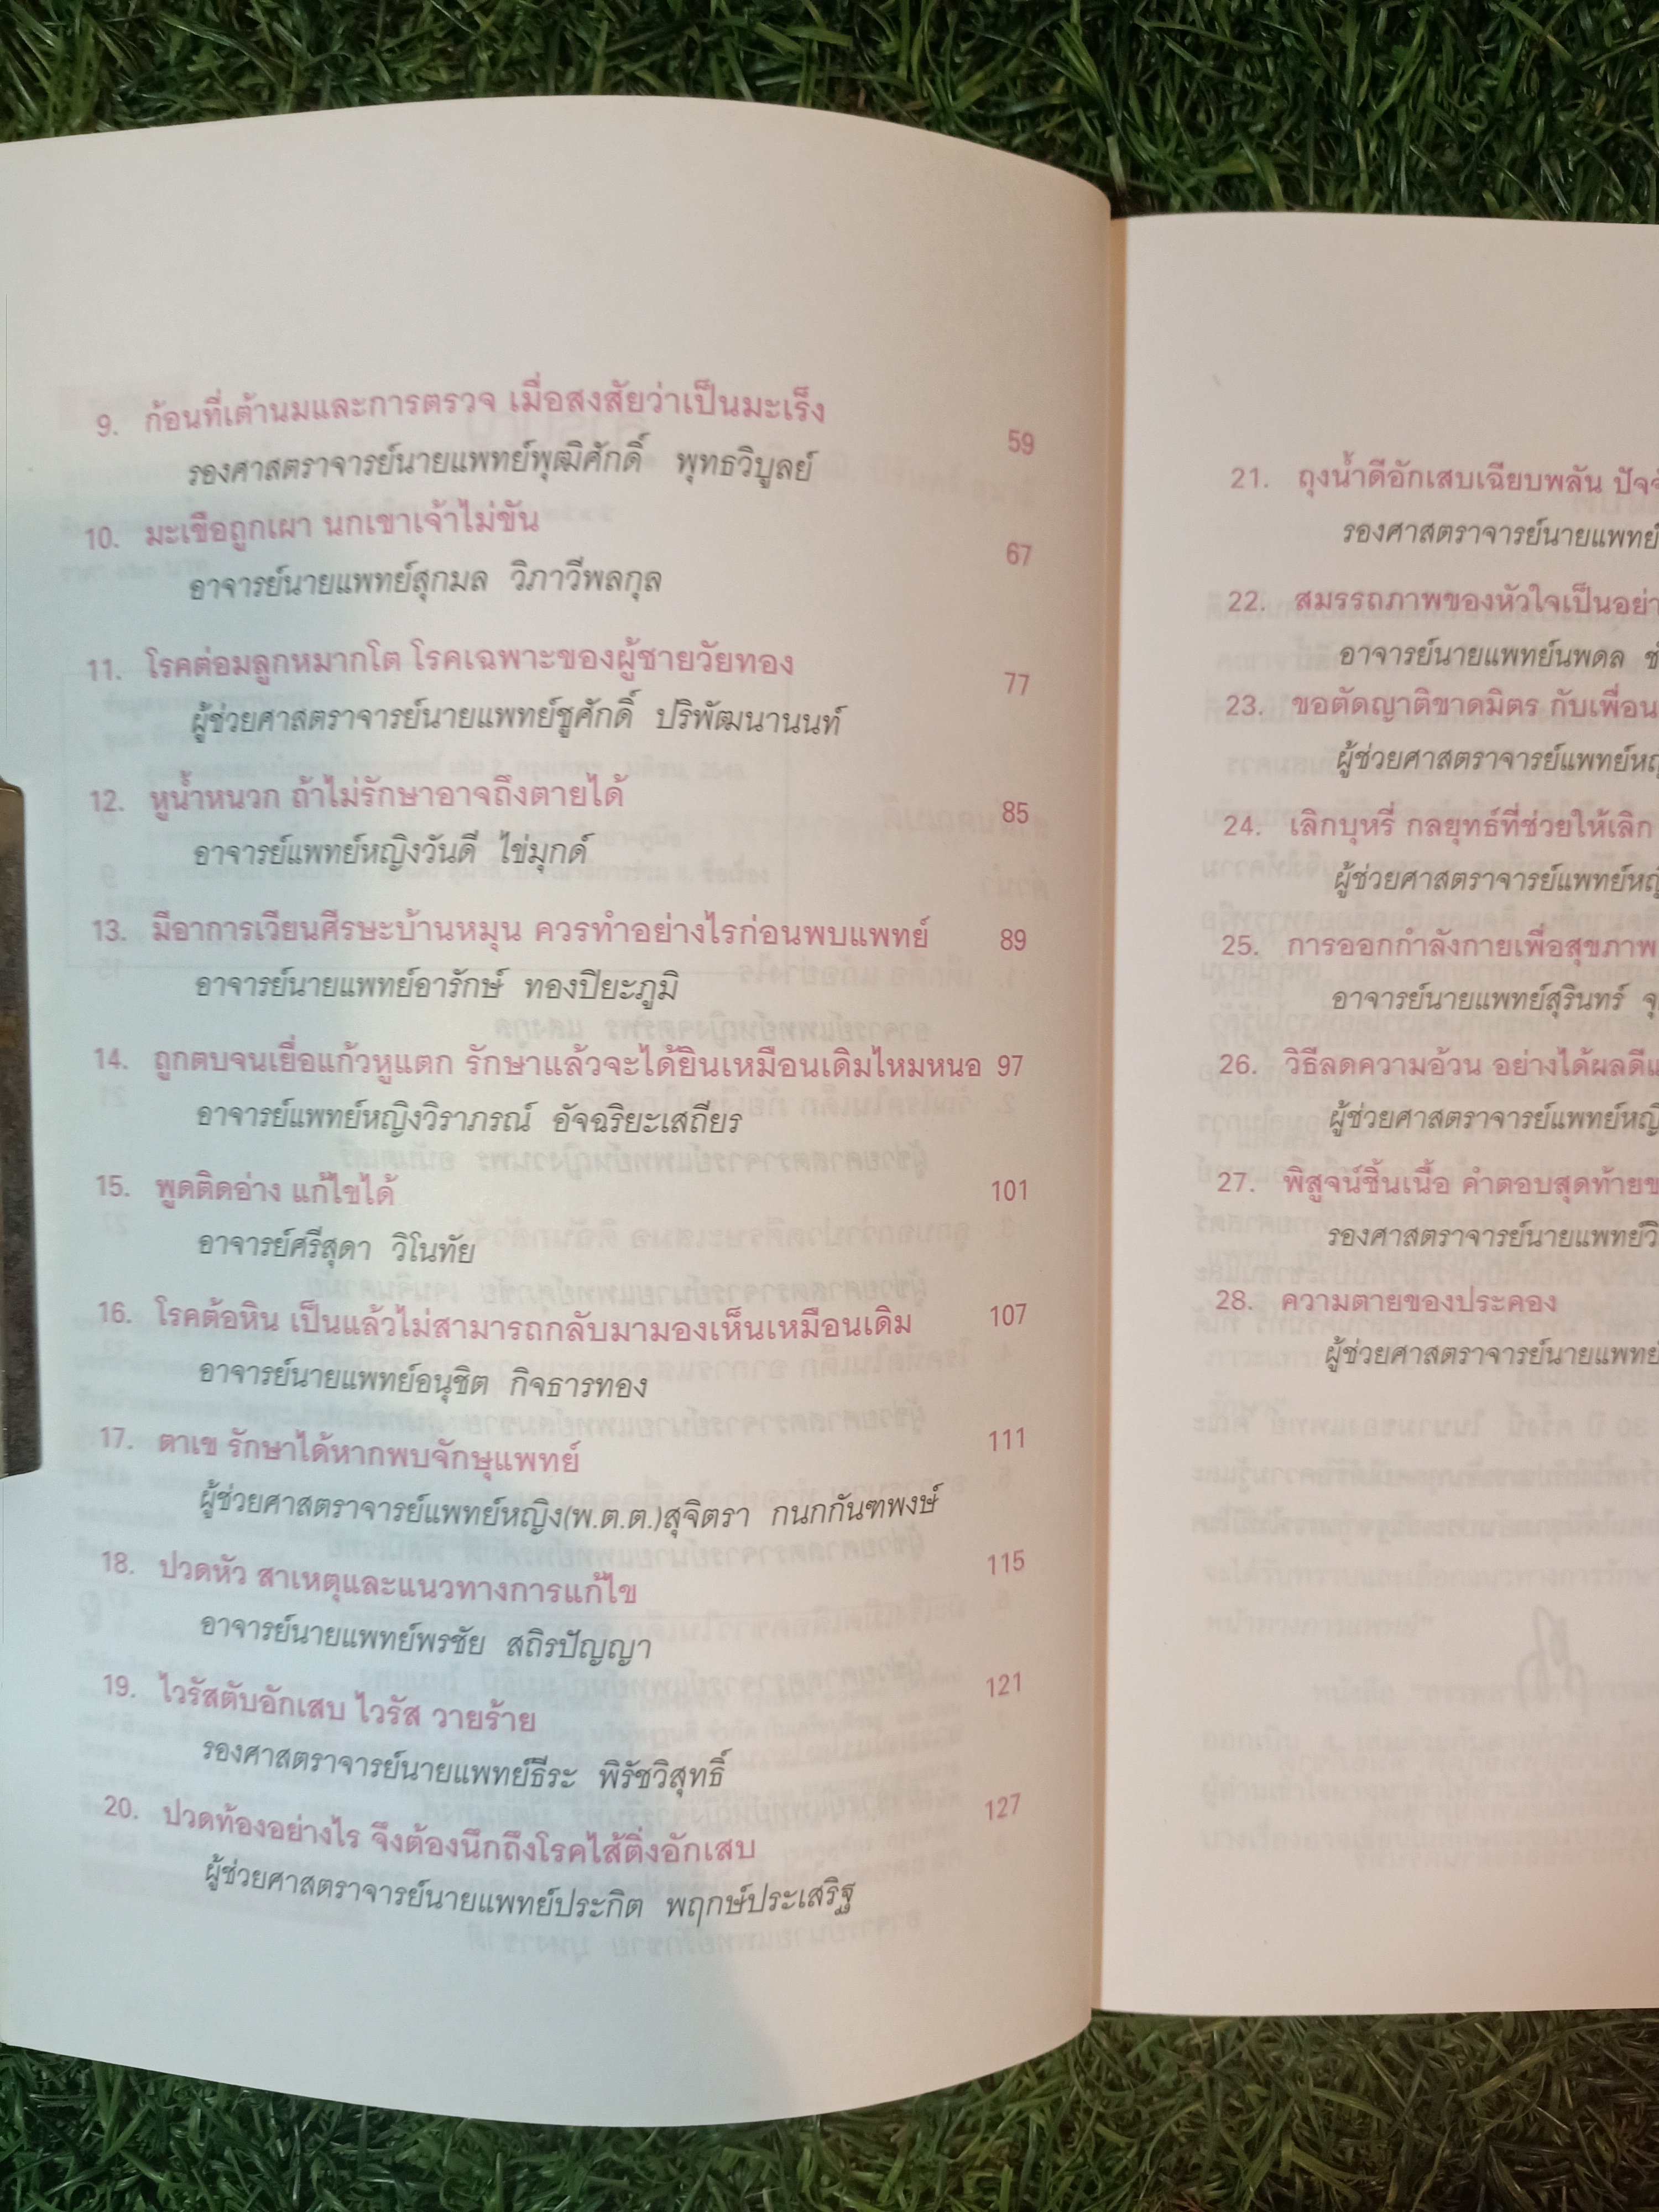 9. ก้อนที่เต้านมและการตรวจ เมื่อสงสัยว่าเป็นมะเร็ง 59
รองศาสตราจารย์นายแพทย์พุฒิศักดิ์ พุทธวิบูลย์
10. มะเขือถูกเผา นกเขาเจ้าไม่ขัน 67
อาจารย์นายแพทย์สุกมล วิภาวีพลกุล
11. โรคต่อมลูกหมากโต โรคเฉพาะของผู้ชายวัยทอง 77
ผู้ช่วยศาสตราจารย์นายแพทย์ชูศักดิ์ ปริพัฒนานนท์
12. หูน้ำหนวก ถ้าไม่รักษาอาจถึงตายได้ 85
อาจารย์แพทย์หญิงวันดี ไข่มุกด์
13. มีอาการเวียนศีรษะบ้านหมุน ควรทำอย่างไรก่อนพบแพทย์ 89
อาจารย์นายแพทย์อารักษ์ ทองปิยะภูมิ
14. ถูกตบจนเยื่อแก้วหูแตก รักษาแล้วจะได้ยินเหมือนเดิมไหมหนอ 97
อาจารย์แพทย์หญิงวิราภรณ์ อัจฉริยะเสถียร
15. พูดติดอ่าง แก้ไขได้ 101
อาจารย์ศรีสุดา วิโนทัย
16. โรคต้อหิน เป็นแล้วไม่สามารถกลับมามองเห็นเหมือนเดิม 107
อาจารย์นายแพทย์อนุชิต กิจธารทอง
17. ตาเข รักษาได้หากพบจักษุแพทย์ 111
ผู้ช่วยศาสตราจารย์แพทย์หญิง(พ.ต.ต.)สุจิตรา กนกกันฑพงษ์
18. ปวดหัว สาเหตุและแนวทางการแก้ไข 115
อาจารย์นายแพทย์พรชัย สถิรปัญญา
19. ไวรัสตับอักเสบ ไวรัส วายร้าย 121
รองศาสตราจารย์นายแพทย์ธีระ พิรัชวิสุทธิ์
20. ปวดท้องอย่างไร จึงต้องนึกถึงโรคไส้ติ่งอักเสบ 127
ผู้ช่วยศาสตราจารย์นายแพทย์ประกิต พฤกษ์ประเสริฐ
21. ถุงน้ำดีอักเสบเฉียบพลัน
รองศาสตราจารย์นายแพทย์
22. สมรรถภาพของหัวใจเป็นอย่า
อาจารย์นายแพทย์นพดล
23. ขอตัดญาติขาดมิตร กับเพื่อน
ผู้ช่วยศาสตราจารย์แพทย์หญ
24. เลิกบุหรี่ กลยุทธ์ที่ช่วยให้เลิก
ผู้ช่วยศาสตราจารย์แพทย์หญ
25. การออกกำลังกายเพื่อสุขภาพ
อาจารย์นายแพทย์สุรินทร์
26. วิธีลดความอ้วน อย่างได้ผลดีแ
ผู้ช่วยศาสตราจารย์แพทย์หญิ
27. พิสูจน์ชิ้นเนื้อ คำตอบสุดท้ายข
รองศาสตราจารย์นายแพทย์วิ
28. ความตายของประคอง
ผู้ช่วยศาสตราจารย์นายแพทย์